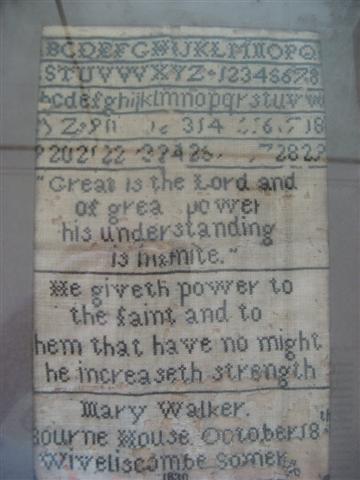 BCDEFGHIJKLMNOPQ
STUVWXYZ 12345678
bcdefghijklmnopqrstuvw
314 18
20 21 22 24 26 28 29
"Great is the Lord and
of grea power
his understanding
is infinite."
He giveth power to
the faint and to
hem that have no might
he increaseth strength
Mary Walker.
Bourne House. October 18th
Wiveliscombe Somer
1830